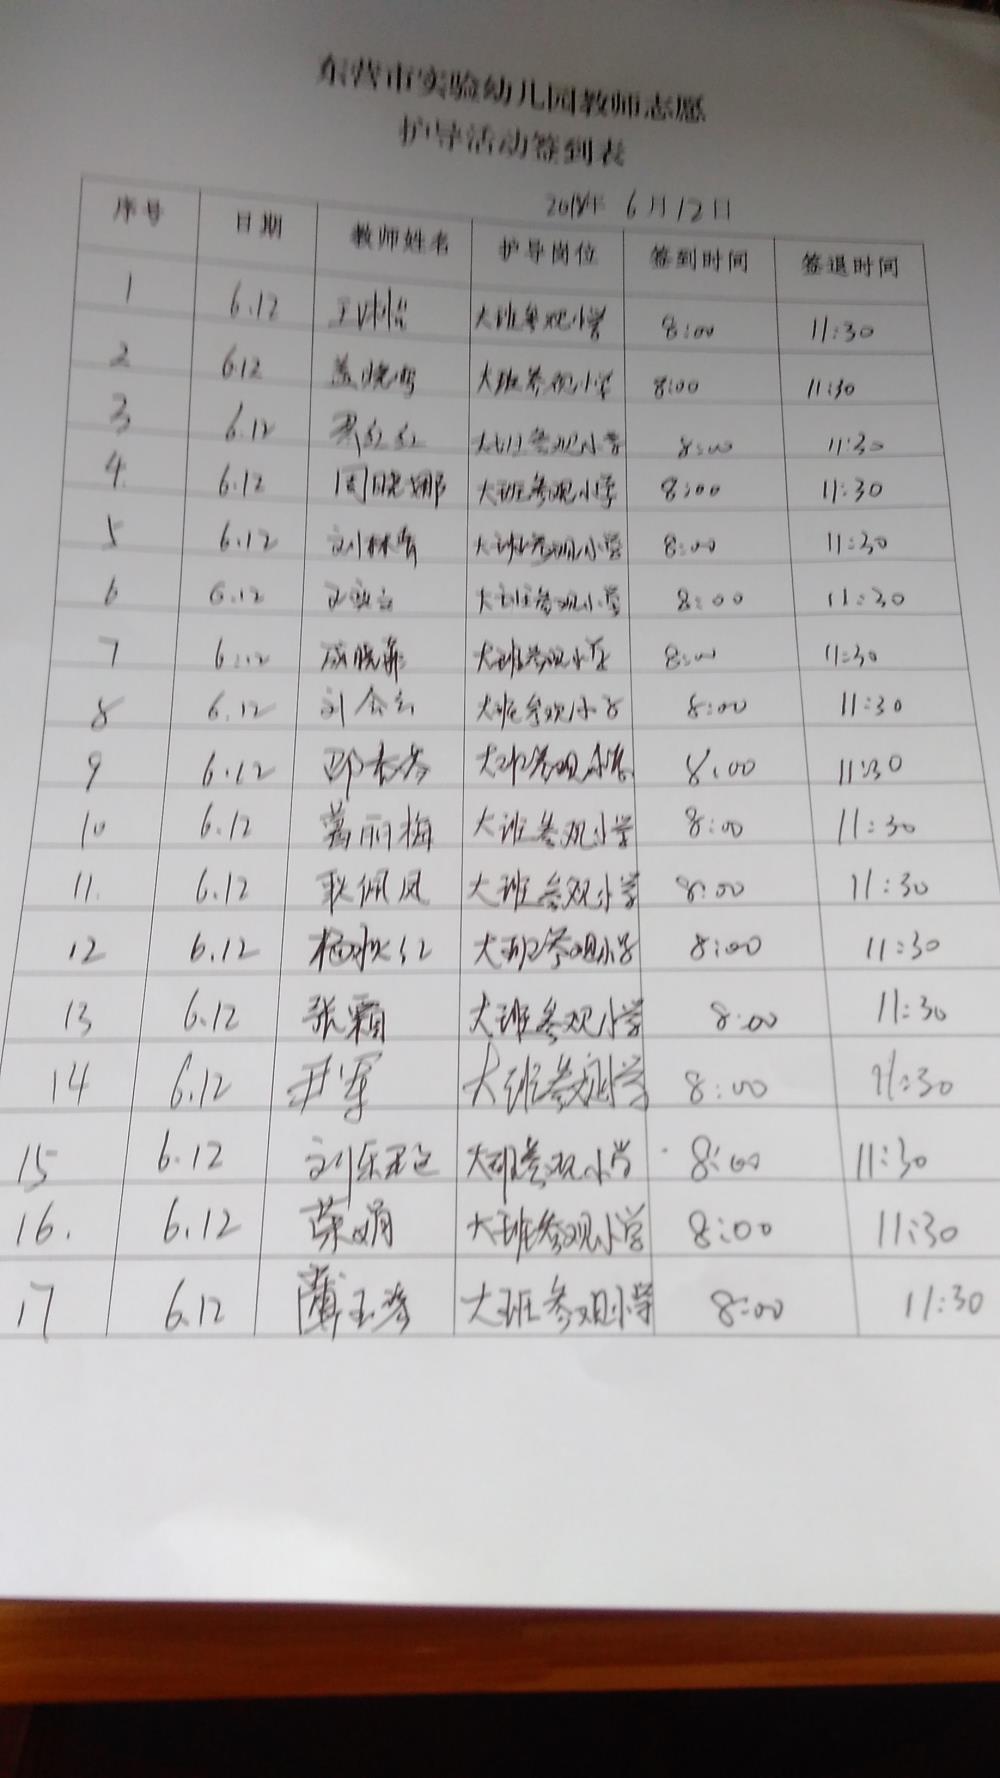 东营市实验幼儿园教师志愿
护导活动签到表
2018年 6月12日
序号 日期 教师姓名 护导岗位 签到时间 签退时间
1 6.12 大班参观小学 8:00 11:30
2 6.12 大班参观小学 8:00 11:30
3 6.12 大班参观小学 8:00 11:30
4 6.12 周晓娜 大班参观小学 8:00 11:30
5 6.12 大班参观小学 8:00 11:30
6 6.12 大班参观小学 8:00 11:30
7 6.12 大班参观小学 8:00 11:30
8 6.12 大班参观小学 8:00 11:30
9 6.12 大班参观小学 8:00 11:30
10 6.12 葛丽梅 大班参观小学 8:00 11:30
11. 6.12 耿佩凤 大班参观小学 8:00 11:30
12 6.12 大班参观小学 8:00 11:30
13 6.12 张颖 大班参观小学 8:00 11:30
14 6.12 尹军 大班参观小学 8:00 11:30
15 6.12 大班参观小学 8:00 11:30
16. 6.12 大班参观小学 8:00 11:30
17 6.12 大班参观小学 8:00 11:30